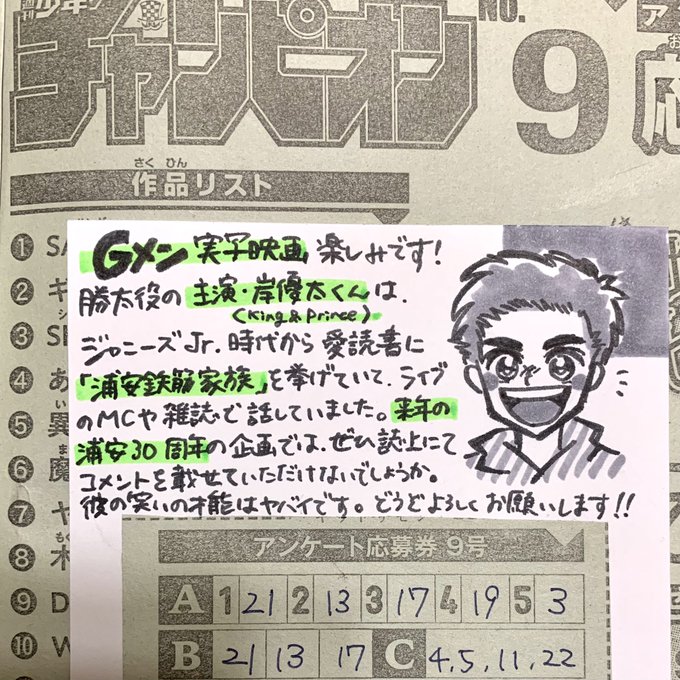 少年
チャンピオン
NO.
9
さくひん
作品リスト
1 SA
2 ギ
3 SH
4 あ
5 異
6 魔
7 ヤ
8 木
9 D
10 W
Gメン 実写映画 楽しみです!
勝太役の 主演・岸優太くんは、
(King&Prince)
ジャニーズJr.時代から愛読書に
「浦安鉄筋家族」を挙げていて、ライブ
のMCや雑誌で話していました。来年の
浦安30周年の企画では、ぜひ誌上にて
コメントを載せていただけないでしょうか。
彼の笑いの才能はヤバイです。どうぞよろしくお願いします!!
アンケート応募券 9号
A 1 21 2 13 3 17 4 19 5 3
B 21 13 17 C 4,5,11,22